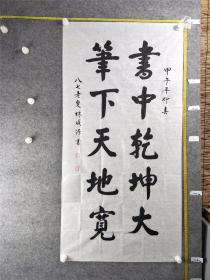 甲午年仲春
書中乾坤大
筆下天地寬
八七老叟林成浮書